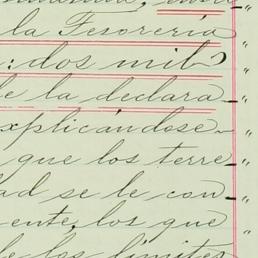 la Tesorería "
: dos mil "
e la declara "
xplicándose "
que los terre "
dad se le con "
ente, los que "
de los límites